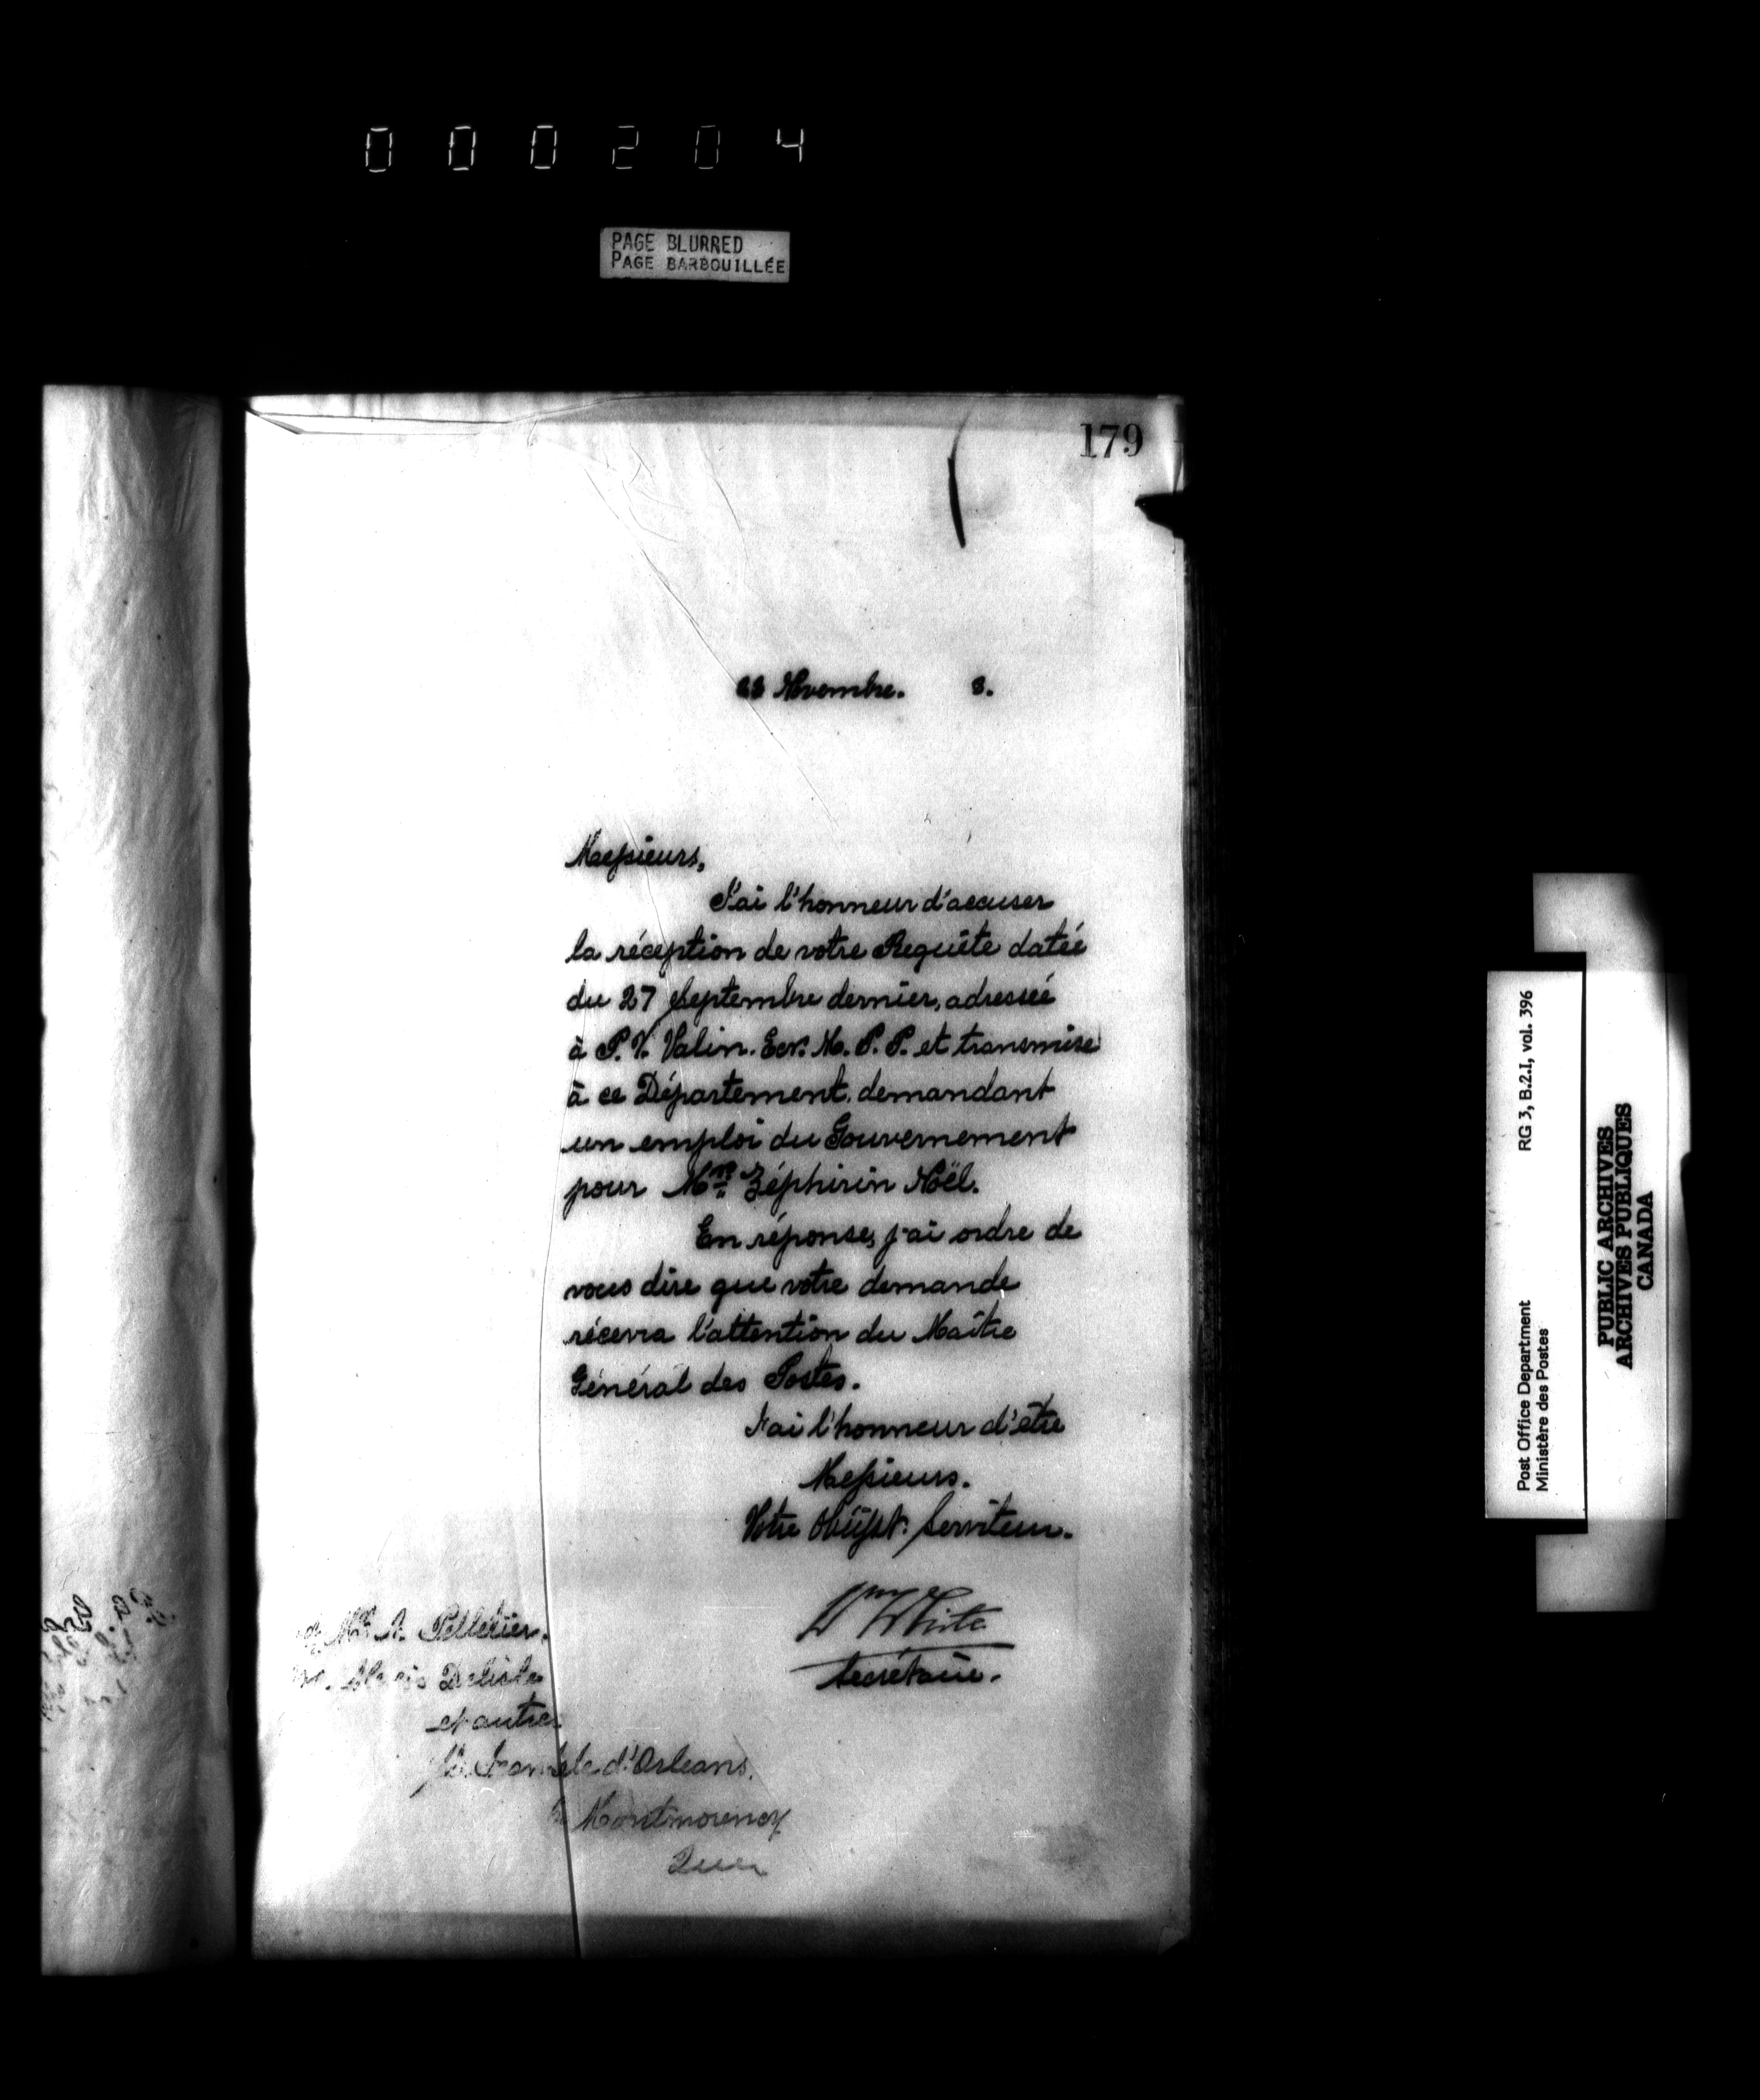 0 0 0 2 0 4
PAGE BLURRED
PAGE BARBOUILLÉE
179
Novembre. 8.
Messieurs,
J'ai l'honneur d'accuser
la réception de votre Requête datée
du 27 Septembre dernier, adressée
à P. V. Valin. Ecr. M. P. P. et transmise
à ce Département, demandant
un emploi du Gouvernement
pour Mr. Zéphirin Noël.
En réponse, j'ai ordre de
vous dire que votre demande
récevra l'attention du Maître
Général des Postes.
J'ai l'honneur d'être
Messieurs.
Votre Obéisst. Serviteur.
Wm White
Secrétaire.
A. Pelletier.
Delisle
et autres
St. Jean Isle d'Orleans.
Montmorency
Quec
Post Office Department
Ministère des Postes
RG 3, B.2.I, vol. 396
PUBLIC ARCHIVES
ARCHIVES PUBLIQUES
CANADA